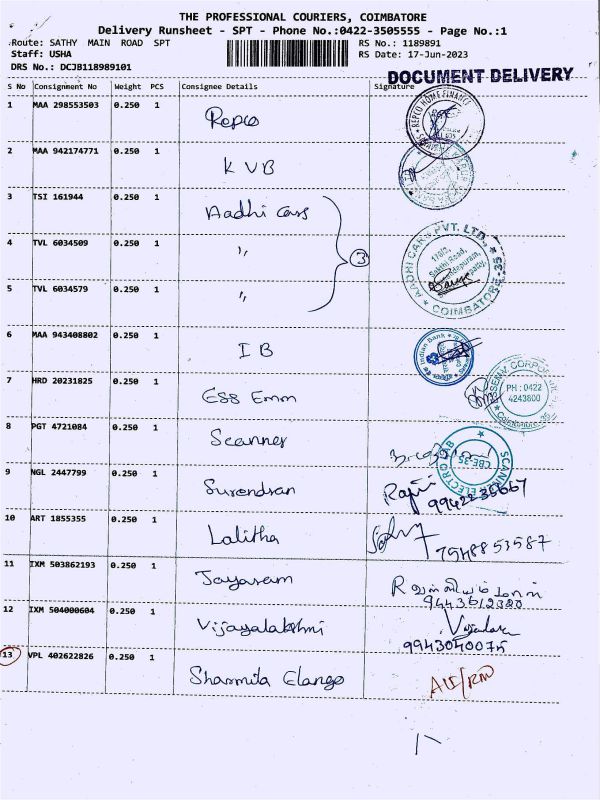 THE PROFESSIONAL COURIERS, COIMBATORE
Delivery Runsheet - SPT - Phone No.:0422-3505555 - Page No.:1
Route: SATHY MAIN ROAD SPT RS No.: 1189891
Staff: USHA RS Date: 17-Jun-2023
DRS No.: DCJB118989101
DOCUMENT DELIVERY
S No Consignment No Weight PCS Consignee Details Signature
1 MAA 298553503 0.250 1 Repco
REPCO HOME FINANCE
2 MAA 942174771 0.250 1 KVB
3 TSI 161944 0.250 1 Aadhi cars
4 TVL 6034509 0.250 1 ,, 3
5 TVL 6034579 0.250 1 ,,
AADHI CARS PVT. LTD.,
Sathi Road,
COIMBATORE-35
6 MAA 943408802 0.250 1 IB
Indian Bank
7 HRD 20231825 0.250 1 ESS Emm
PH : 0422
4243800
8 PGT 4721084 0.250 1 Scanner
CBE-35
9 NGL 2447799 0.250 1 Surendran
9942235667
10 ART 1855355 0.250 1 Lalitha
7548853587
11 IXM 503862193 0.250 1 Jayaram
12 IXM 504000604 0.250 1 Vijayalakshmi
9943040075
13 VPL 402622826 0.250 1 Sharmila Elango